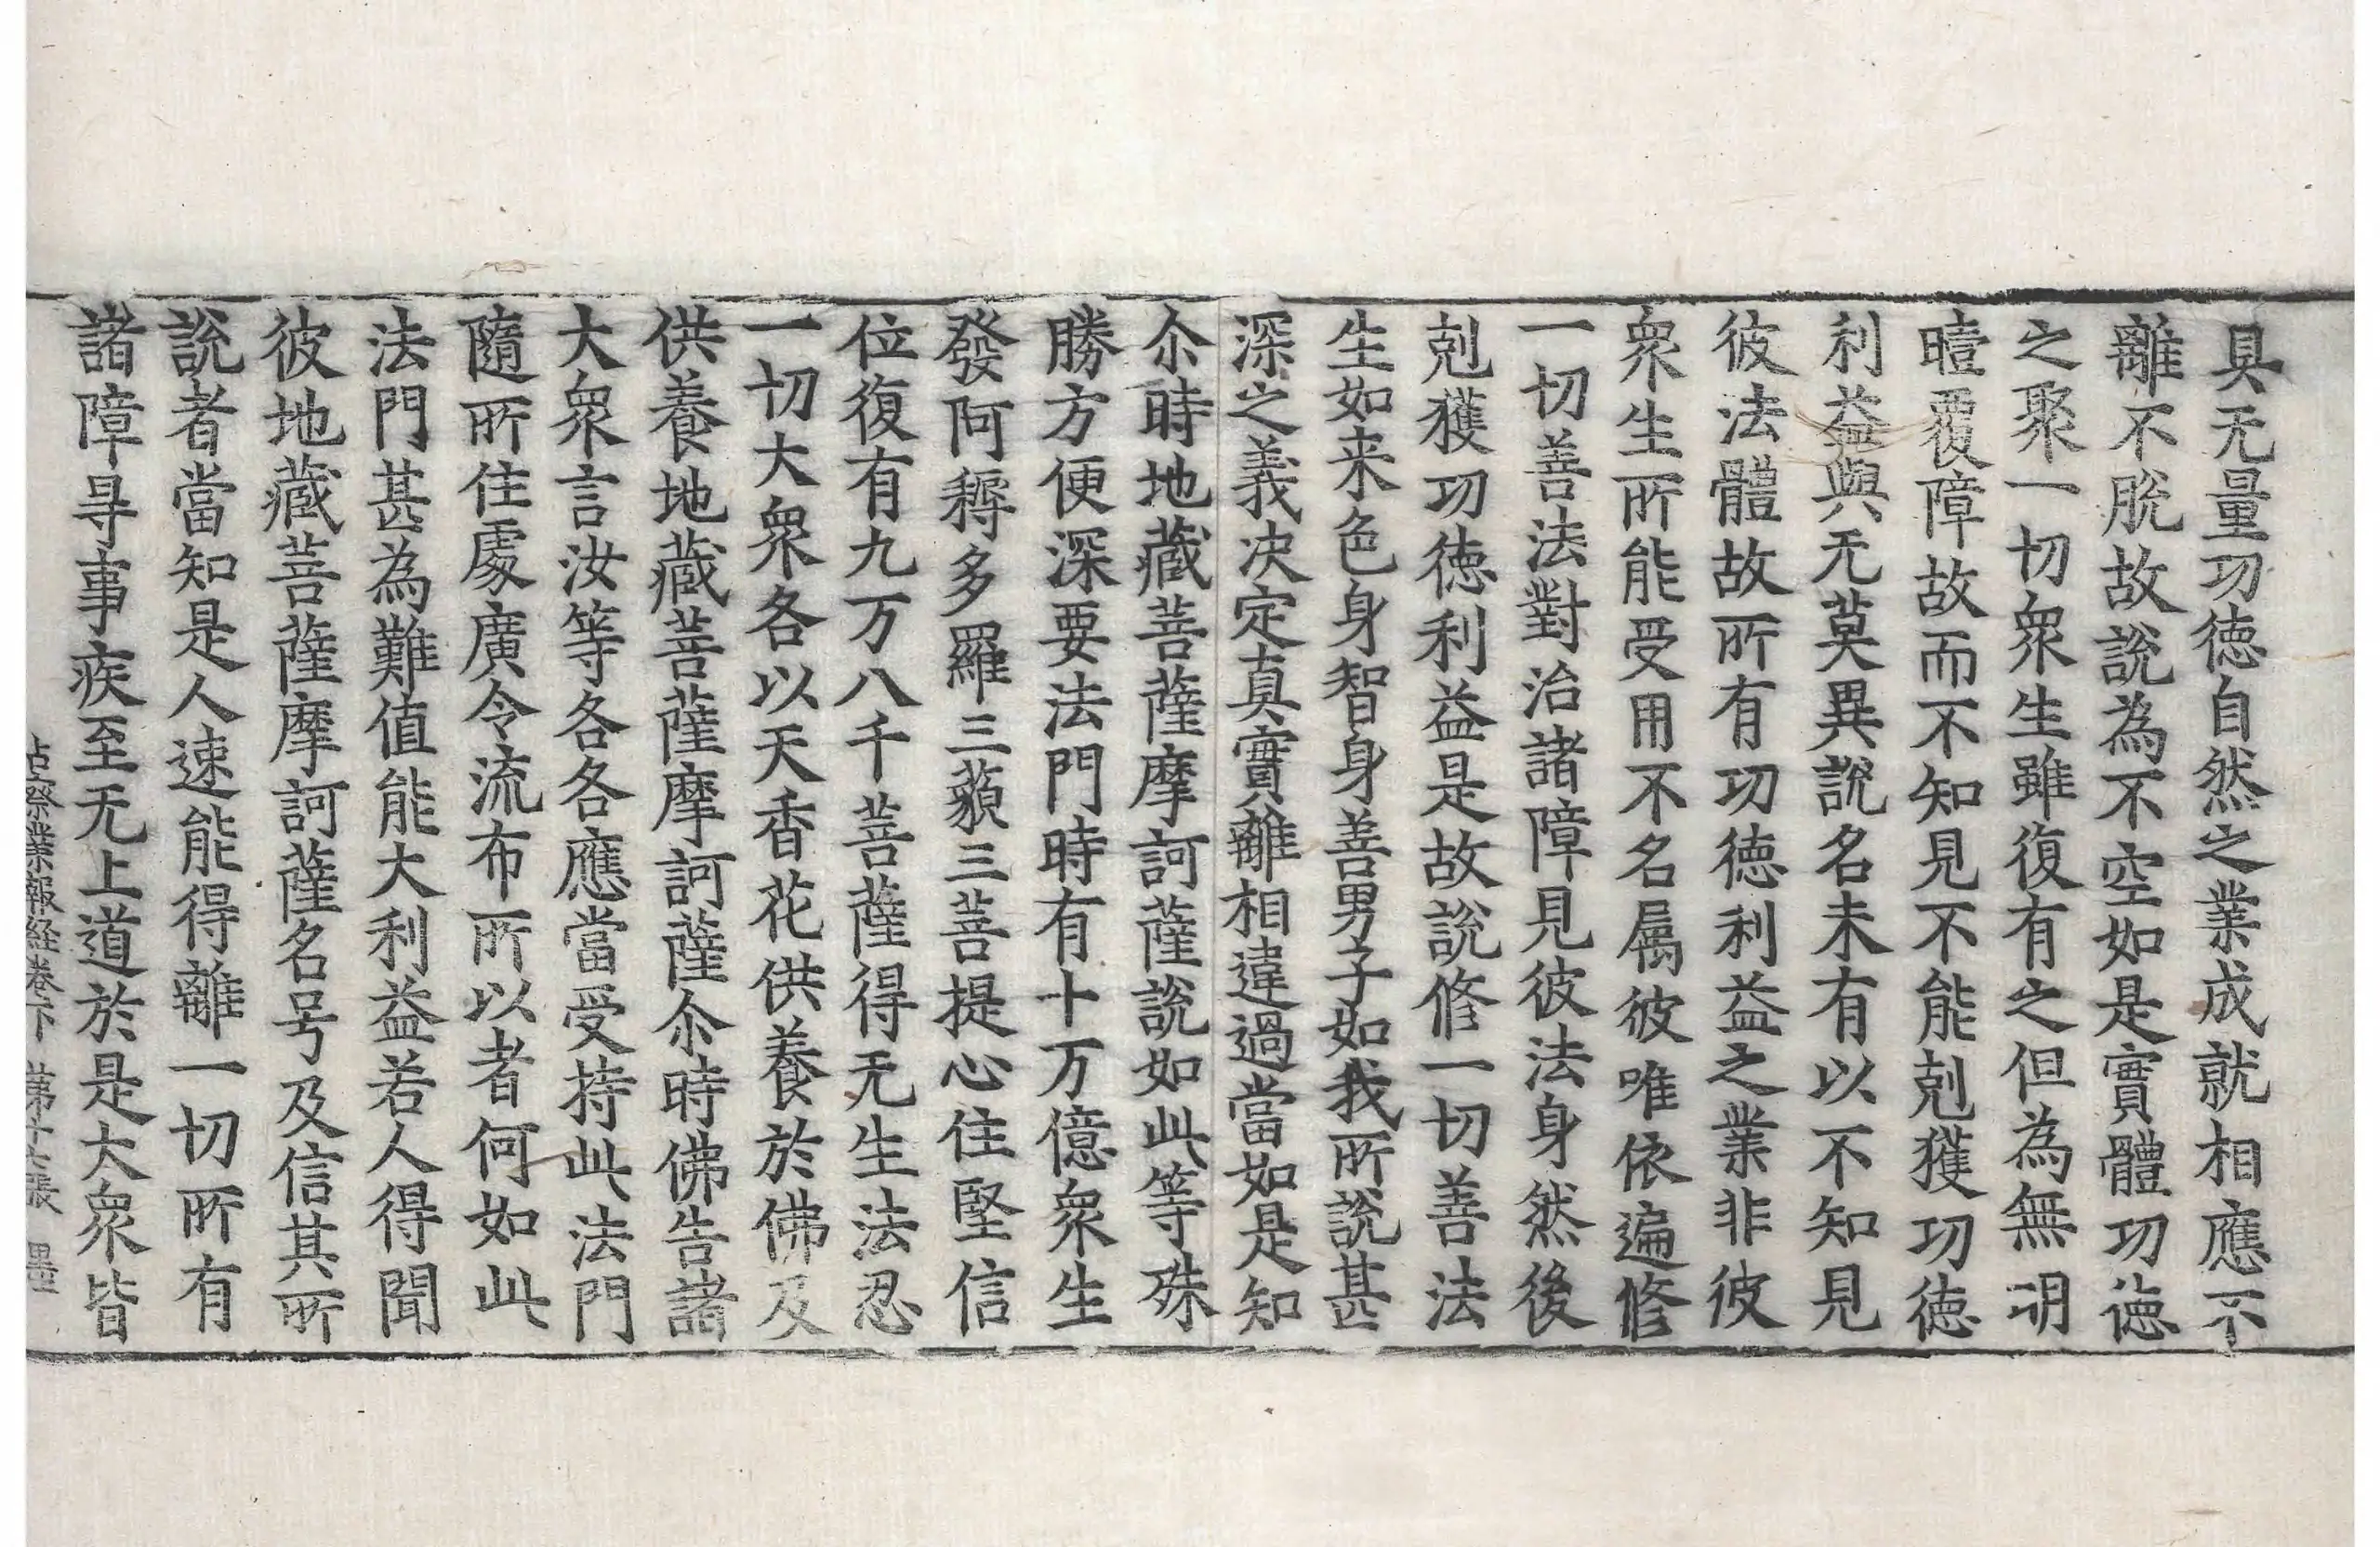 具无量功徳自然之業成就相應不
離不脫故說為不空如是實體功徳
之聚一切衆生雖復有之但為無明
曀覆障故而不知見不能剋獲功徳
利益與无莫異說名未有以不知見
彼法體故所有功徳利益之業非彼
衆生所能受用不名属彼唯依遍修
一切善法對治諸障見彼法身然後
剋獲功徳利益是故說修一切善法
生如来色身智身善男子如我所說甚
深之義决定真實離相違過當如是知
尒時地藏菩薩摩訶薩說如此等殊
勝方便深要法門時有十万億衆生
發阿耨多羅三藐三菩提心住堅信
位復有九万八千菩薩得无生法忍
一切大衆各以天香花供養於佛及
供養地藏菩薩摩訶薩尒時佛告諸
大衆言汝等各各應當受持此法門
隨所住處廣令流布所以者何如此
法門甚為難值能大利益若人得聞
彼地藏菩薩摩訶薩名号及信其所
說者當知是人速能得離一切所有
諸障㝵事疾至无上道於是大衆皆
占察業報経卷下 第十六張 墨